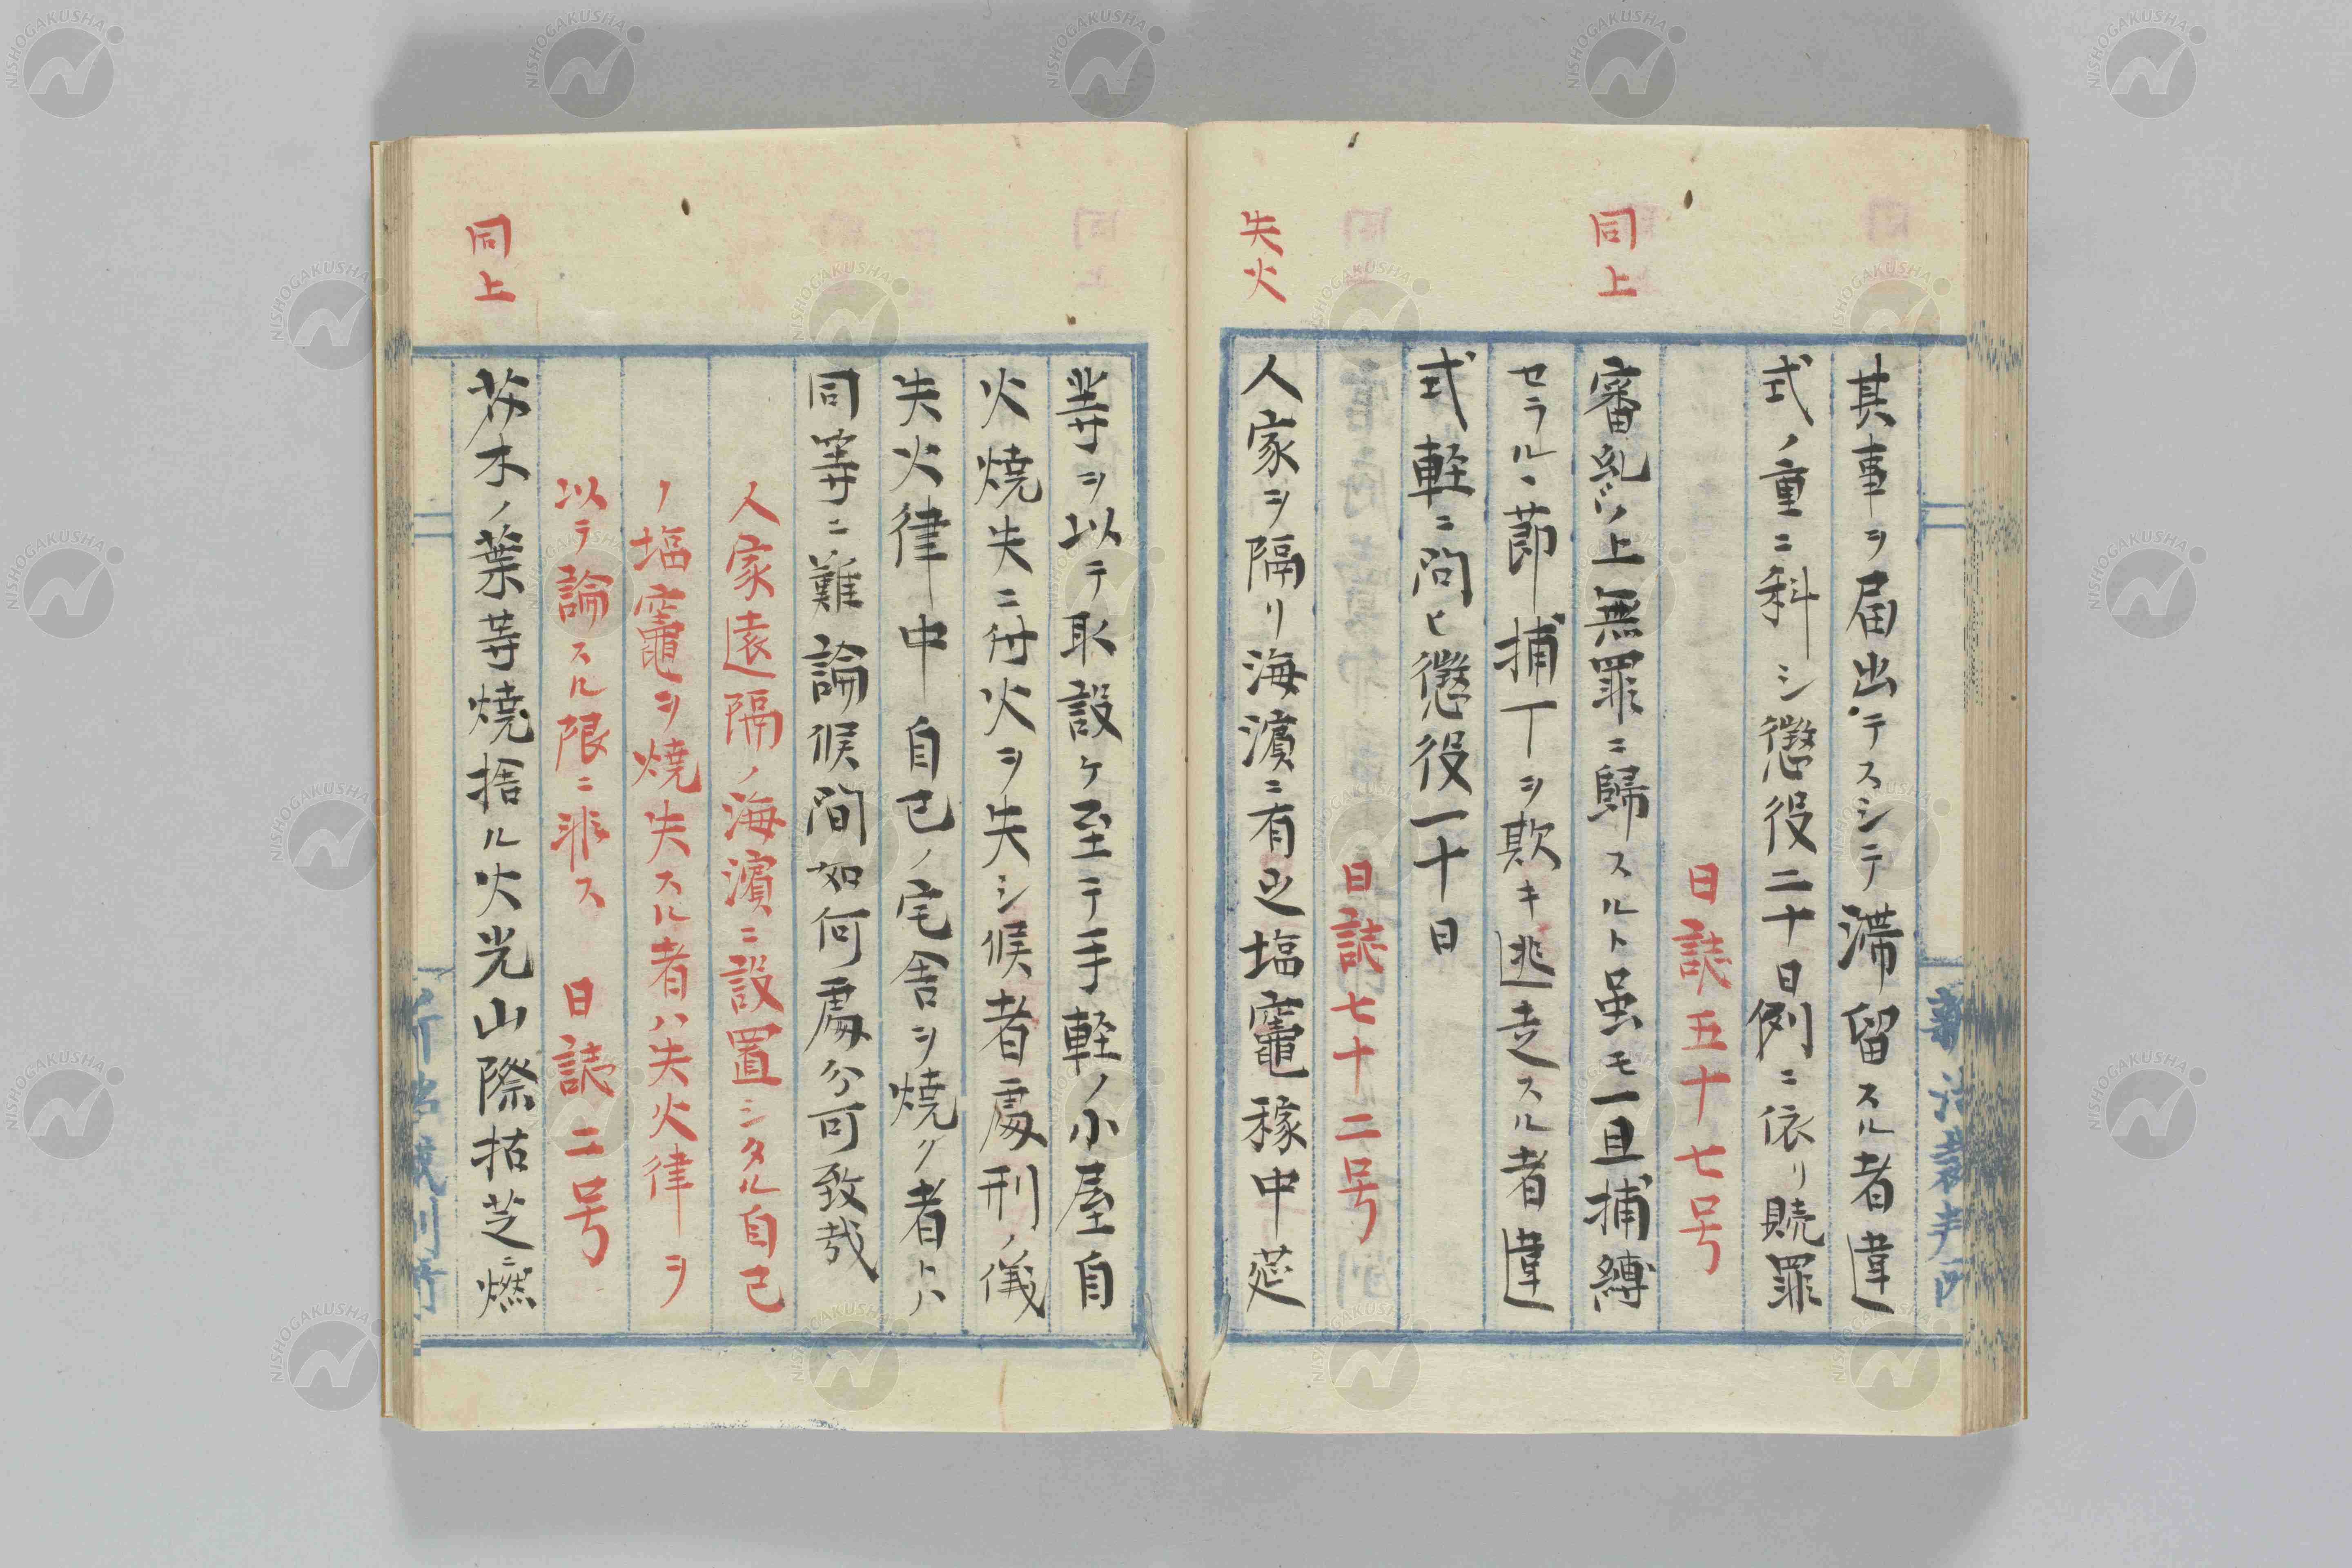 其事ヲ届出テスシテ滞留スル者違
式ノ重ニ科シ懲役二十日例ニ依リ贖罪
日誌五十七号
同上
審糺ノ上無罪ニ歸スルト虽モ一旦捕縛
セラルヽ節捕丁ヲ欺キ逃走スル者違
式軽ニ問ヒ懲役一十日
日誌七十二号
失火
人家ヲ隔リ海濵ニ有之塩竈稼中莚
等ヲ以テ取設ケ至テ手軽ノ小屋自
火焼失ニ付火ヲ失シ候者處刑ノ儀
失火律中自己ノ宅舎ヲ焼ク者トハ
同等ニ難論候間如何處分可致哉
人家遠隔ノ海濵ニ設置シタル自己
ノ塩竈ヲ焼失スル者ハ失火律ヲ
以テ論スル限ニ非ス 日誌二号
同上
芥木ノ葉等焼捨ル火光山際枯芝ニ燃
NISHOGAKUSHA